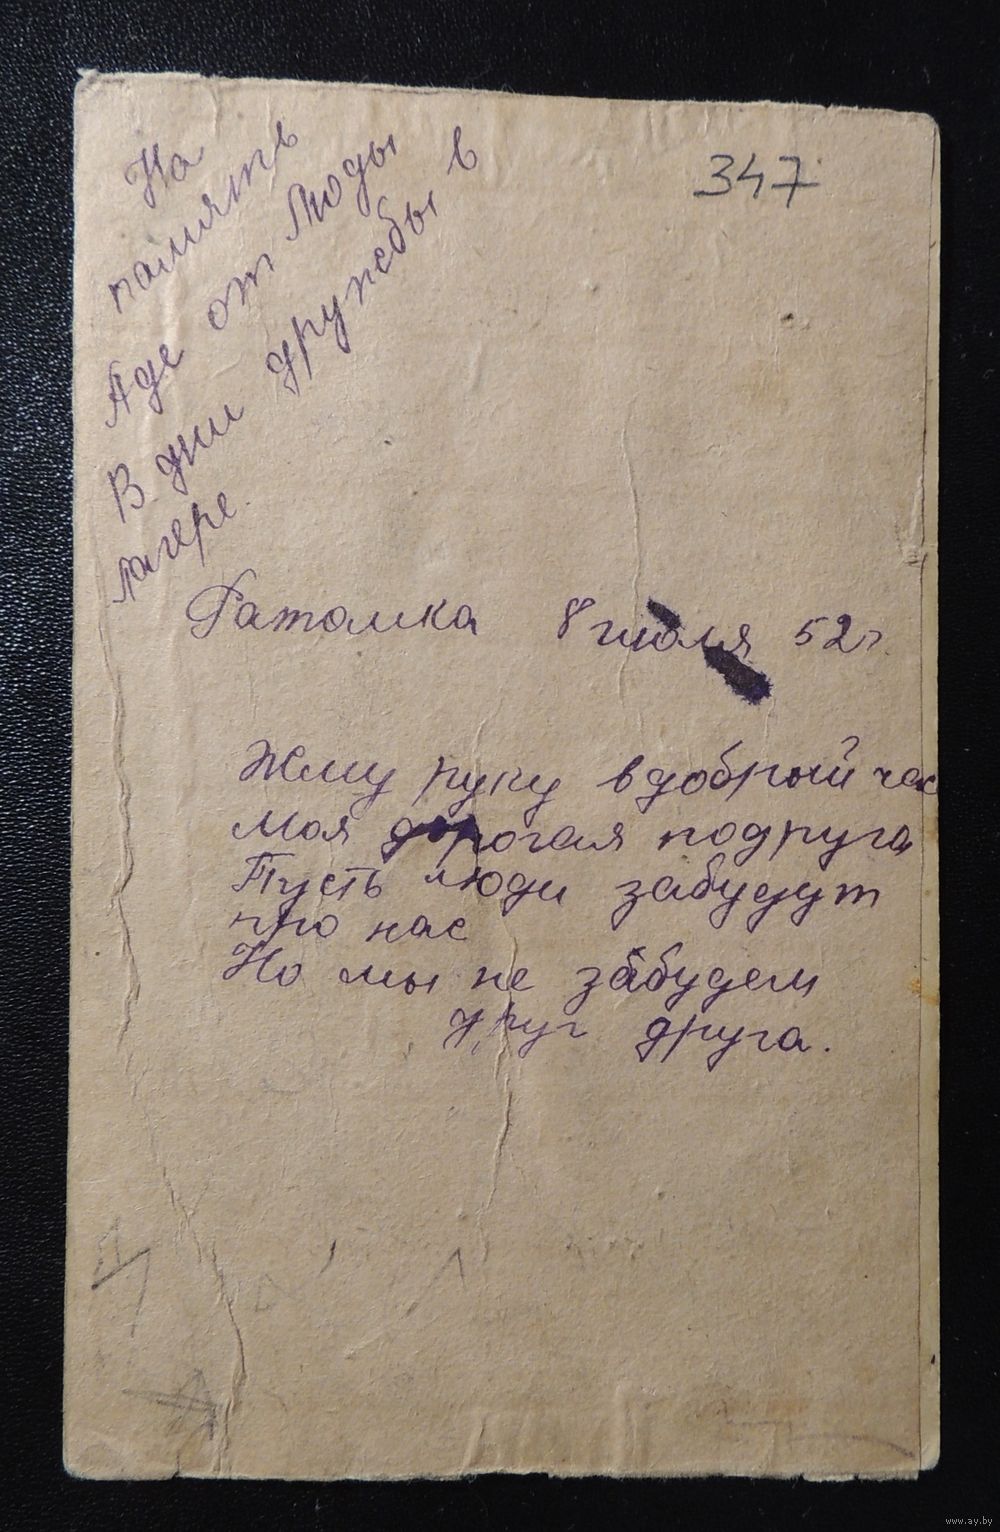 На
память
Аде от Люды
В дни дружбы в
лагере.
347
Ратомка 8 июля 52 г.
Жму руку в добрый час
Моя дорогая подруга
Пусть люди забудут
про нас
Но мы не забудем
друг друга.
www.ay.by